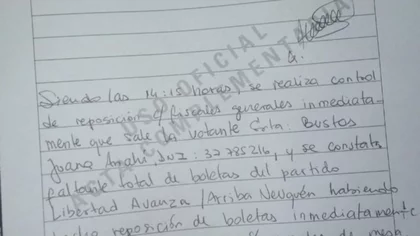 G.
Siendo las 14:15 horas, se realiza control
de reposición c/ fiscales generales inmediata-
mente que sale la votante Srta. Bustos
Joana Anahí DNI: 37785216, y se constata
faltante total de boletas del partido
Libertad Avanza / Arriba Neuquén habiendo
hecho reposición de boletas inmediatamente
USO OFICIAL
ACTA COMPLEMENTARIA